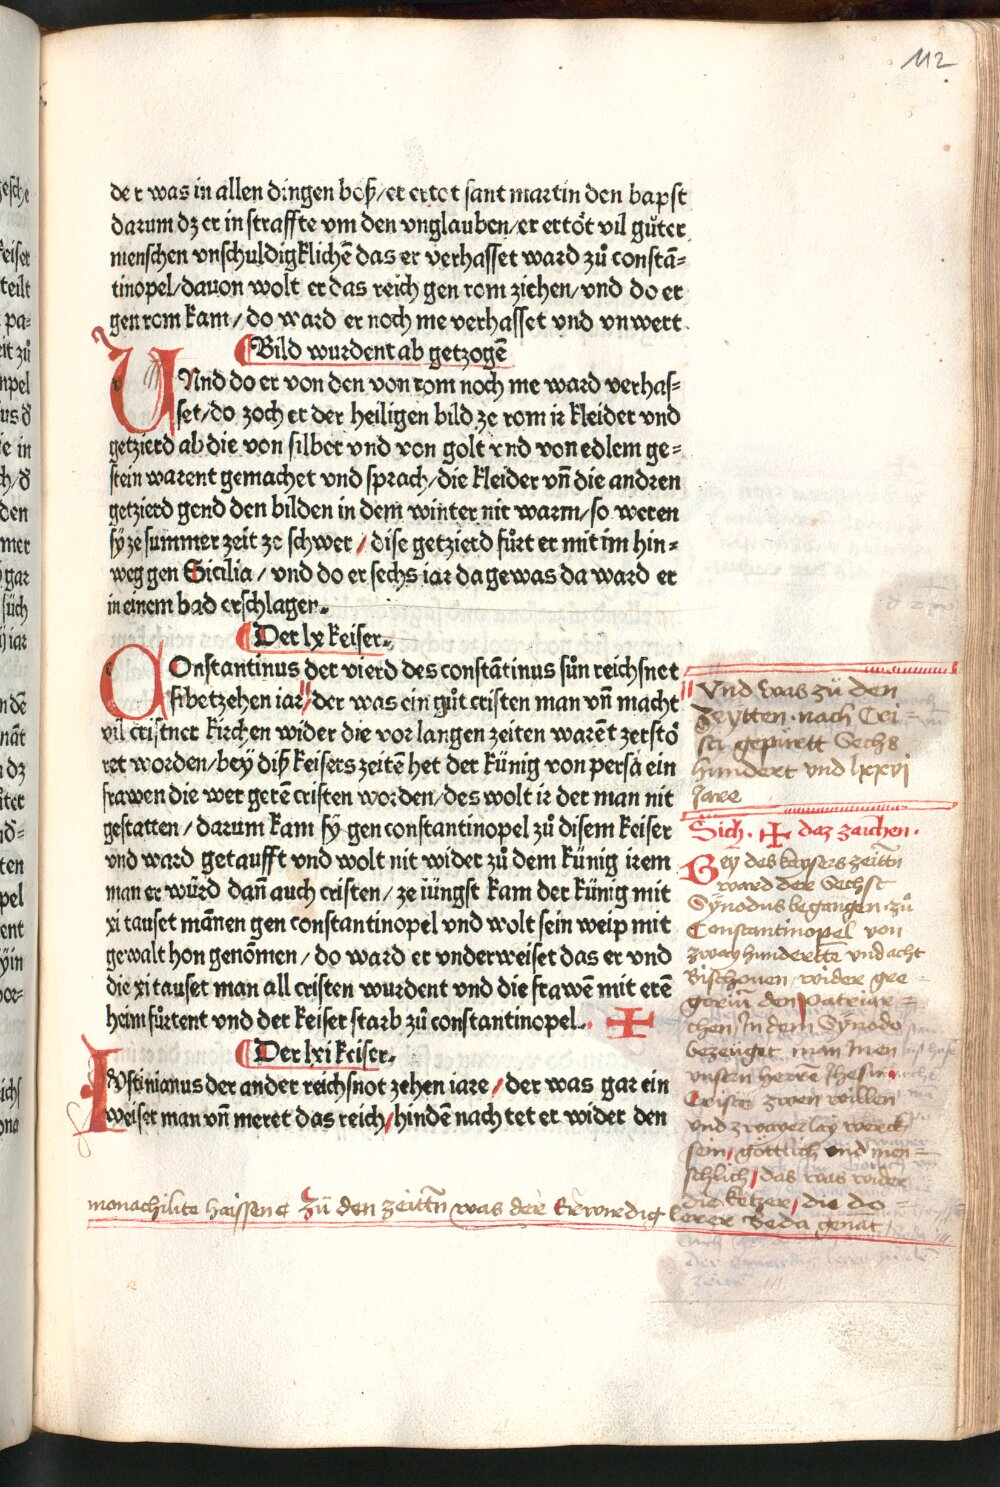 112
der was in allen dingen boß/er ertot sant martin den bapst
darum dz er in straffte vm den vnglauben/er ertöt vil gůter
menschen vnschuldigklichē das er verhasset ward zů constā⸗
tinopel/dauon wolt er das reich gen rom ziehen/vnd do er
gen rom kam/do ward er noch me verhasset vnd vnwert
Bild wurdent ab getzogē
VNnd do er von den von rom noch me ward verhas⸗
set/do zoch er der heiligen bild ze rom ir kleider vnd
getzierd ab die von silber vnd von golt vnd von edlem ge⸗
stein warent gemachet vnd sprach/die kleider vn̄ die andren
getzierd gend den bilden in dem winter nit warm/so weren
sy ze summer zeit ze schwer/dise getzierd fůrt er mit im hin⸗
weg gen Sicilia/vnd do er sechs iar da gewas da ward er
in einem bad erschlagen.
Der lx keiser.
COnstantinus der vierd des constātinus sůn reichsnet
sibetzehen iar/der was ein gůt cristen man vn̄ macht
vil cristner kirchen wider die vor langen zeiten warēt zerstö
ret worden/bey diß keisers zeitē het der künig von persia ein
frawen die wer gerē cristen worden/des wolt ir der man nit
gestatten/darum kam sy gen constantinopel zů disem keiser
vnd ward getaufft vnd wolt nit wider zů dem künig irem
man er würd dañ auch cristen/ze iüngst kam der künig mit
xi tauset mānen gen constantinopel vnd wolt sein weip mit
gewalt hon genōmen/do ward er vnderweiset das er vnd
die xi tauset man all cristen wurdent vnd die frawē mit erē
heim fůrtent vnd der keiser starb zů constantinopel. ✠
Der lxi keiser.
IVstinianus der ander reichsnot zehen iare/der was gar ein
weiser man vn̄ meret das reich/hindē nach tet er wider den
Vnd was zů den
Zeÿtten nach Cri⸗
sti gepürtt Sechs
hundert vnd lxxvj
Jare
Sich ✠ daz zaichen.
Beÿ des keÿsers zeittn
ward der Sechst
Sÿnodus begangen zů
Constantinopel von
zwayhundertt vnd acht
Bischouen wider gre⸗
goriū den patriar⸗
chen/In dem Sÿnodo
bezeügt man Inen
vnsern herrē Ihesu
Cristo zwen willen
vnd zwayerlay werck
sein/göttlich vnd men⸗
schlich/das was wider
die ketzer/die do
monachilite haissene Zů den zeittn was der Erwirdig lerer Beda genāt